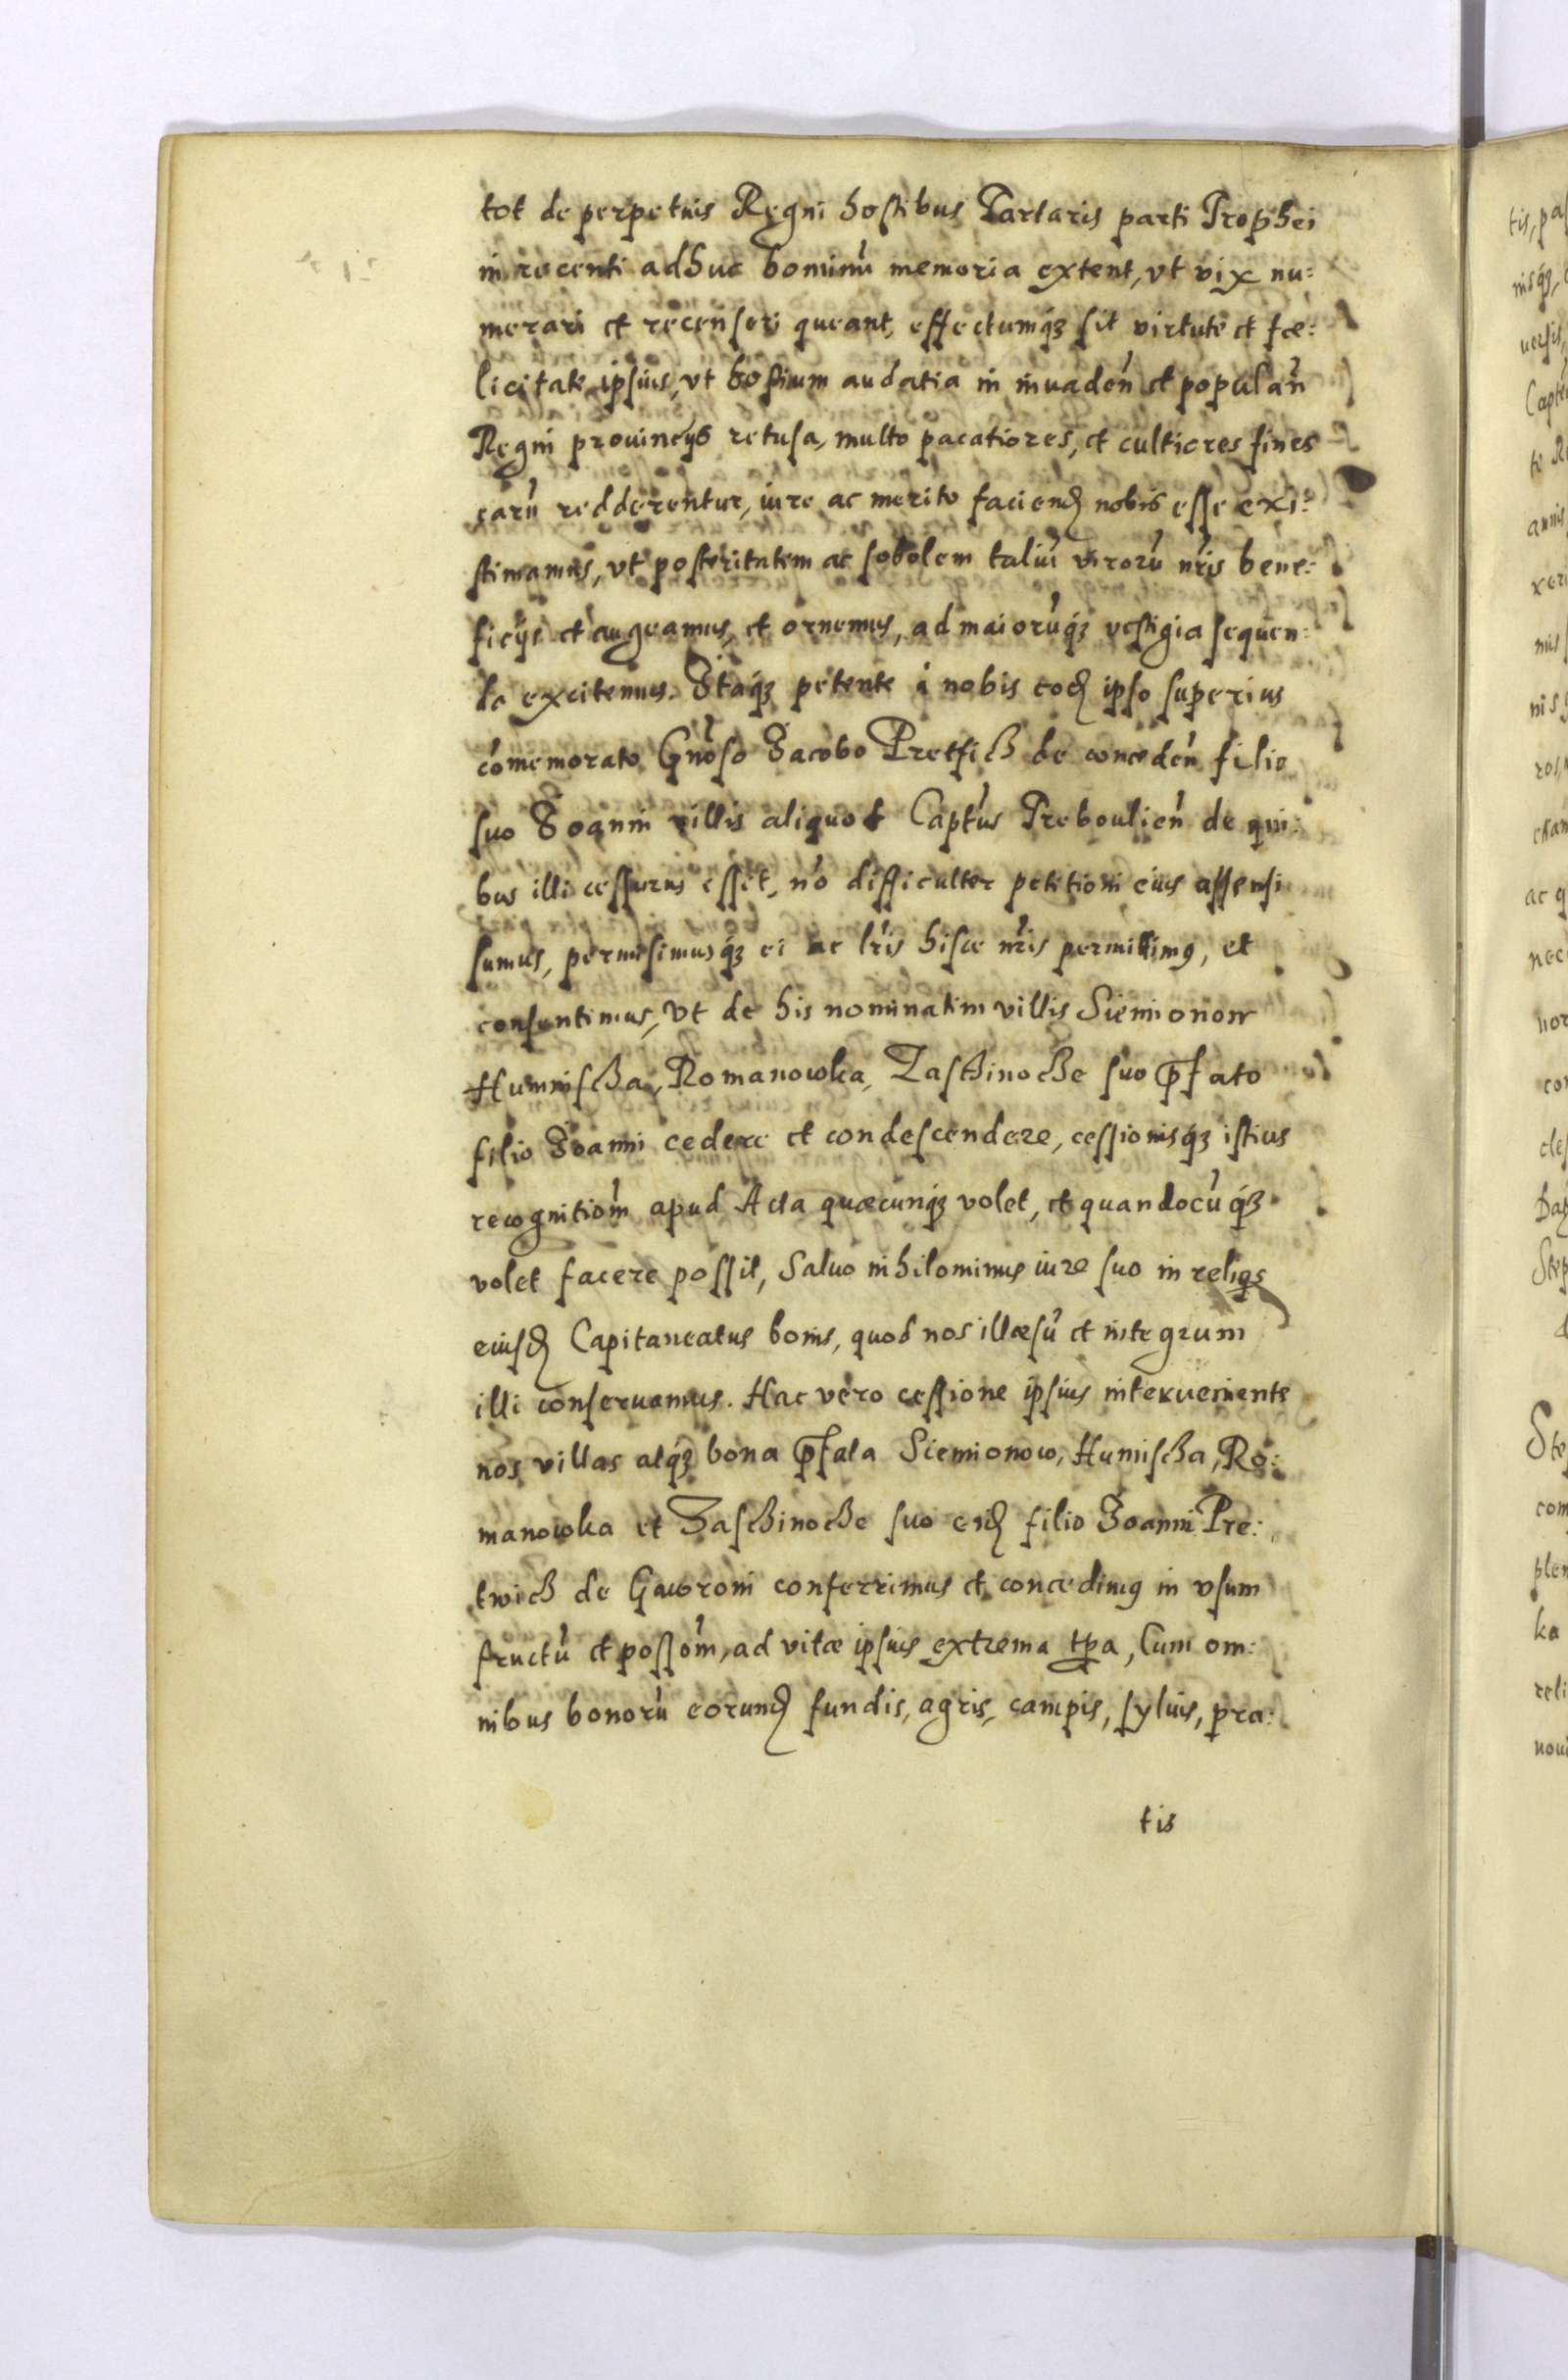 tot de perpetuis Regni hostibus Tartaris parti Trophei
in recenti adhuc hominū memoria extent, vt vix nu:
merari et recenseri queant, effectumq́ꝫ sit virtute et fœ:
licitate ipsius, vt hostium audatia in inuadeń et populań
Regni prouincijs retusa, multo pacatiores, et cultiores fines
earū redderentur, iure ac merito faciend nobis esse exi:
stimamus, vt posteritatem ac sobolem taliū virorū nr̄is bene:
ficijs et augeamus, et ornemus, ad maiorūq́ꝫ vestigia sequen:
da excitemus. Itaq́ꝫ petente á nobis eod ipso superius
cómemorato Gnōso Jacobo Pretfich de concedeń filio
suo Joanni villis aliquot Capt́us Treboulień de qui:
bus illi cessurus esset, nō difficulter petitioni eius assensi
sumus, permisimusq́ꝫ ei ac lr̄is hisce nr̄is permittimꝰ, et
consentimus, vt de his nominatim villis Siemionow
Humnischa, Romanowka, Zaschinoche suo p̄fato
filio Joanni cedere et condescendere, cessionisq́ꝫ istius
recognitiom̄ apud Acta quæcunq́ꝫ volet, et quandocūq́ꝫ
volet facere possit, Saluo nihilominus iure suo in reliqs
eiusd Capitaneatus bonis, quod nos illæsū et integrum
illi conseruamus. Hac vero cessione ipsius interueniente
nos villas atq́ꝫ bona p̄fata Siemionow, Humischa, Ro:
manowka et Zaschinoche suo eid filio Joanni Pre:
twich de Gaworoni conferrimus et concedimꝰ in vsum
fructū et possom̄, ad vitæ ipsius extrema tp̄a, Cum om:
nibus bonorū eorund fundis, agris, campis, syluis, pra:
tis